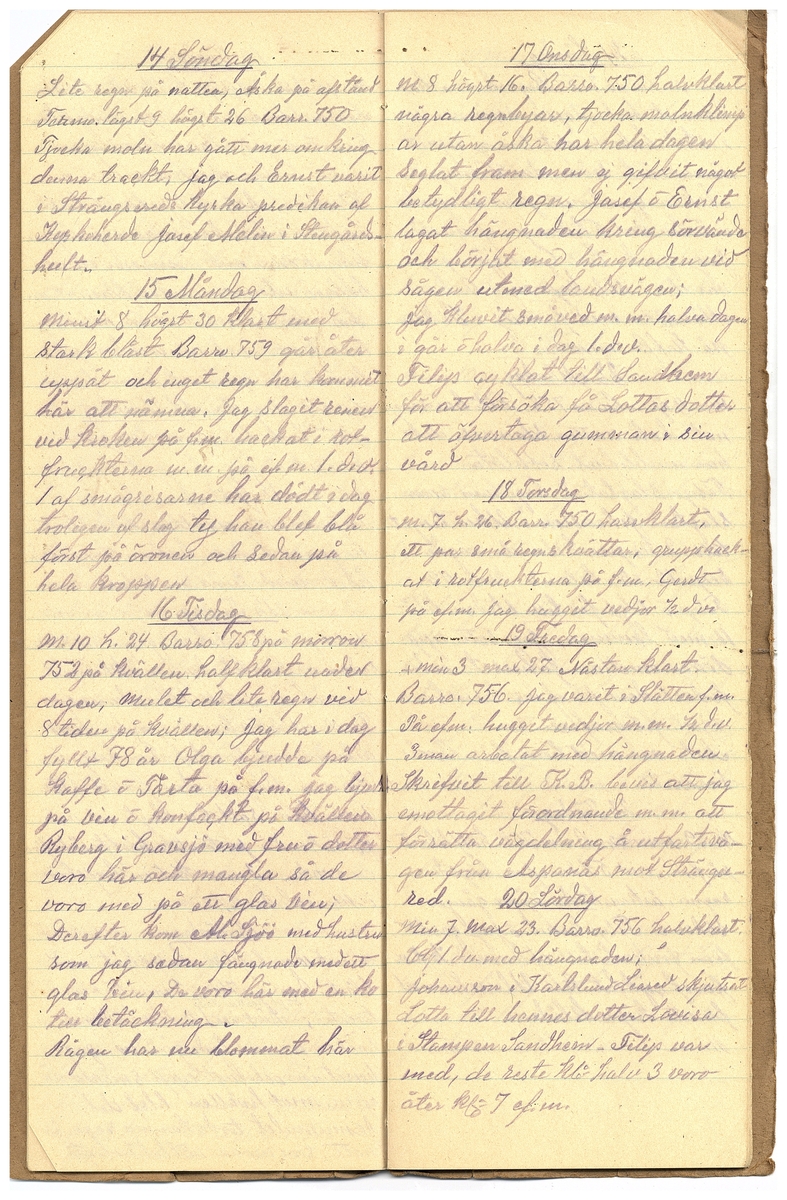 14 Söndag
Lite regn på natten, Åska på afstånd
Termo. lägst 9 högst 26 Barr. 750
Tjocka moln har gått mer omkring
denna trackt, jag och Ernst varit
i Strängsereds kyrka predikan af
Kyrkoherde Josef Melin i Stengårds-
hult.
15 Måndag
Minst 8 högst 30 klart med
stark blåst Barro. 759 går åter
uppåt och inget regn har kommit
här att nämna. Jag slagit renen
vid kroken på f.m. hackat i rot-
fruckterna m.m. på ef.m. 1. d.v.
1 af smågrisarne har dödt i dag
troligen af slag ty han blef blå
först på öronen och sedan på
hela kroppen
16 Tisdag
M. 10 h. 24 Barro. 758 på morron
752 på kvällen. halfklart under
dagen, mulet och lite regn vid
8 tiden på kvällen; Jag har i dag
fyllt 78 år Olga bjudde på
Kaffe o Tårta på f.m. jag bjudt
på vin o konfeckt på kvällen
Ryberg i Gravsjö med fru o dotter
voro här och mangla så de
voro med på ett glas vin;
Derefter kom A. Sjöö med hustru
som jag sedan fängnade med ett
glas vin, De voro här med en ko
till betäckning.
Rågen har nu blommat här
17 Onsdag
M 8 högst 16. Barro. 750 halvklart
några regnbyar, tjocka molnklimp
ar utan åska har hela dagen
seglat fram men ej gifvit något
betydligt regn. Josef o Ernst
lagat hängnaden kring sörvände
och börjat med hängnaden vid
sågen utmed landsvägen;
jag kluvit småved m.m. halva dagen
i går o halva i dag 1. d.v.
Filip cyklat till Sandhem
för att försöka få Lottas dotter
att öfvertaga gumman i sin
vård
18 Torsdag
m. 7. h. 26. Barr. 750 halvklart,
ett par små regnskvättar, grupphack-
at i rotfruckterna på f.m. Gerdt
på ef.m. jag hugget vedjor ½ d v
19 Fredag
min 3 max 27. Nästan klart.
Barro. 756. jag varit i Slätten f.m.
På ef.m. hugget vedjor m.m. ½ d.v.
3 man arbetat med hängnaden.
Skrifvit till K.B. bevis att jag
emottagit förordnande m.m. att
förrätta vägdelning å utfartsvä-
gen från Aspanäs mot Stränge-
red.
20 Lördag
Min 7. max 23. Barro. 756 halvklart.
1 dv med hängnaden;
Johansson i Karlslund Liared skjutsat
Lotta till hennes dotter Lovisa
i Stampen Sandhem - Filip var
med, de reste kl: halv 3 voro
åter kl: 7 ef.m.